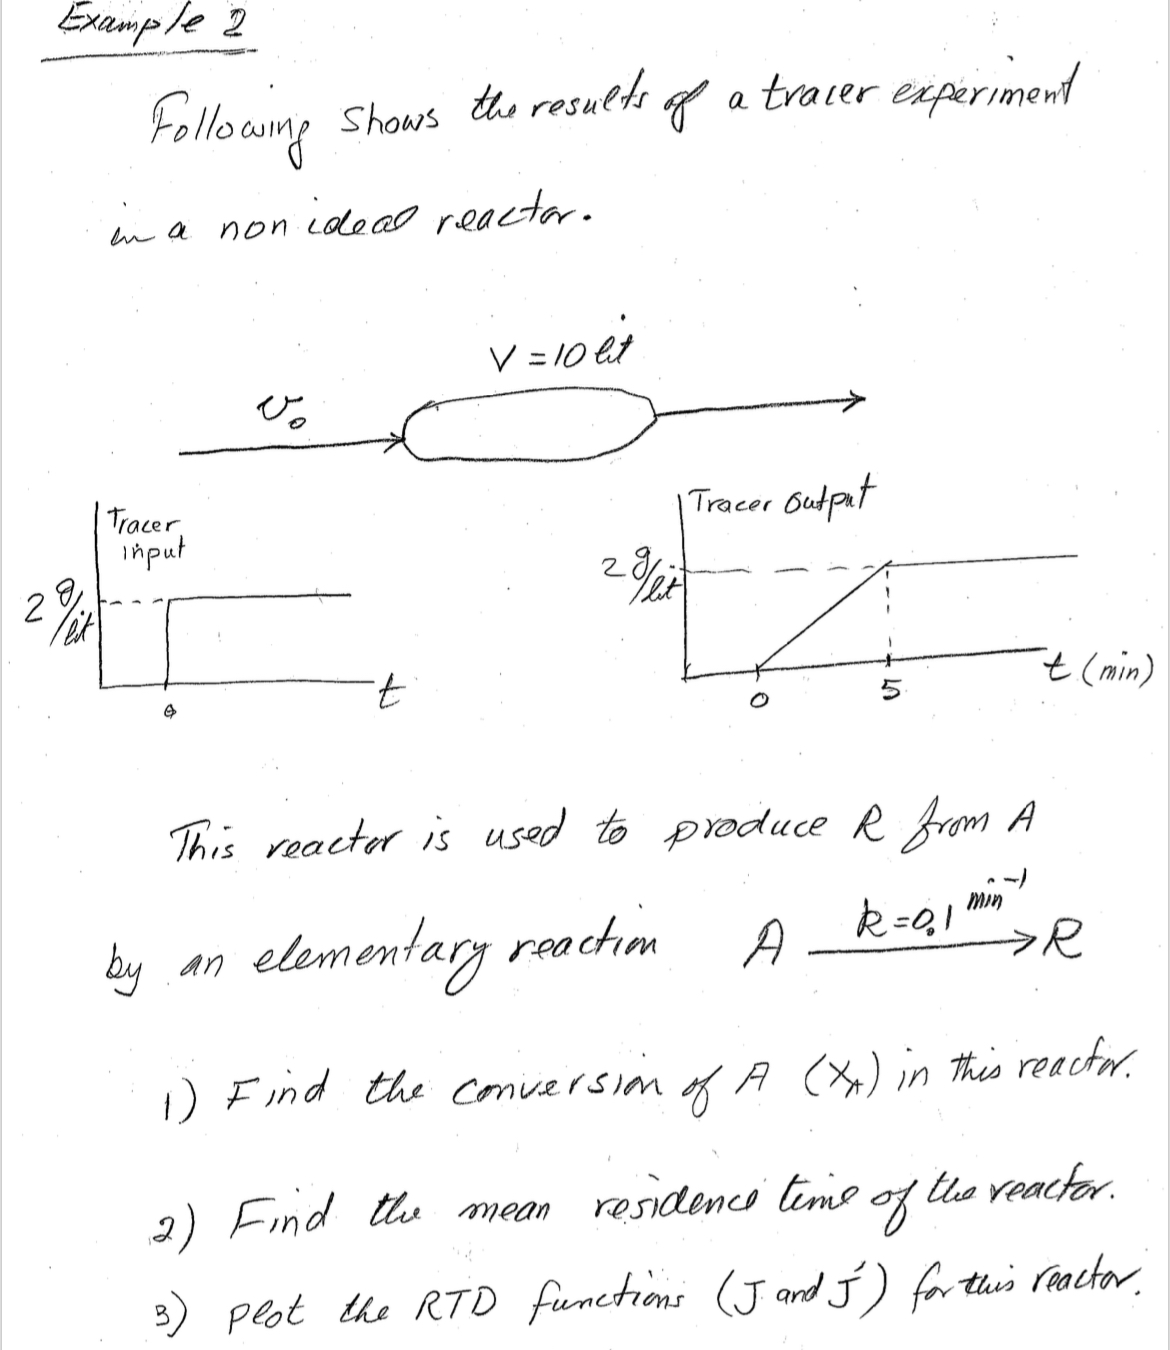 Example 2
Following shows the results of a tracer experiment
in a non ideal reactor.
V = 10 lit
v₀
Tracer
input
2 g/lit
t
0
Tracer output
2 g/lit
t (min)
0
5
This reactor is used to produce R from A
by an elementary reaction A k=0.1 min⁻¹ → R
1) Find the conversion of A (X_A) in this reactor.
2) Find the mean residence time of the reactor.
3) plot the RTD functions (J and J́) for this reactor.